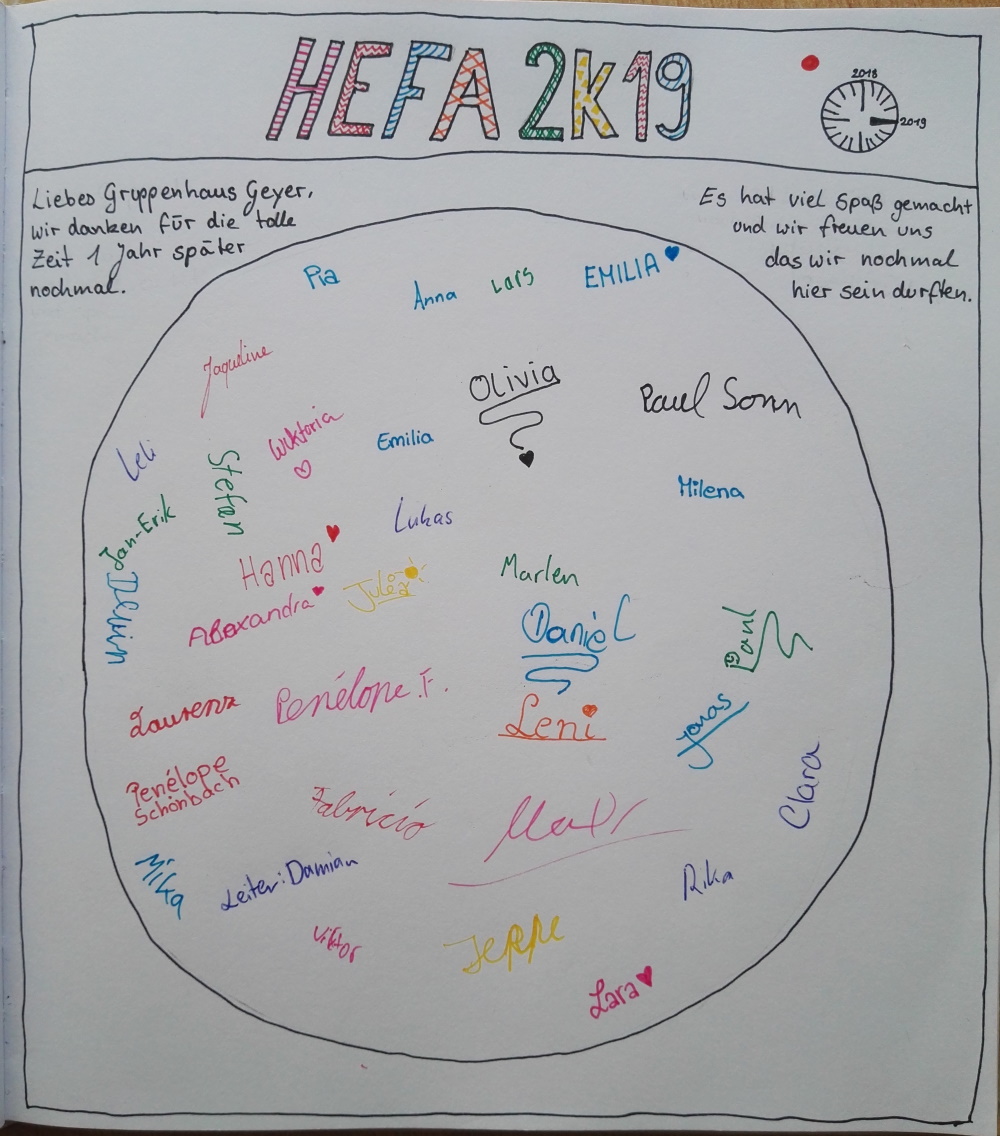 HEFA 2K19
2018
2019
Liebes Gruppenhaus Geyer,
wir danken für die tolle
Zeit 1 Jahr später
nochmal.
Es hat viel Spaß gemacht
und wir freuen uns
das wir nochmal
hier sein durften.
Pia
Anna
Lars
EMILIA
Jaqueline
Olivia
Paul Sonn
Leli
Stefan
Wiktoria
Emilia
Milena
Jan-Erik
Lukas
Hanna
Marlen
Julea
Alexandra
Daniel
Paul
Laurenz
Penélope.F.
Leni
Jonas
Penélope
Schönbach
Fabricio
Clara
Mika
Leiter: Damian
Rika
Viktor
Jeppe
Lara